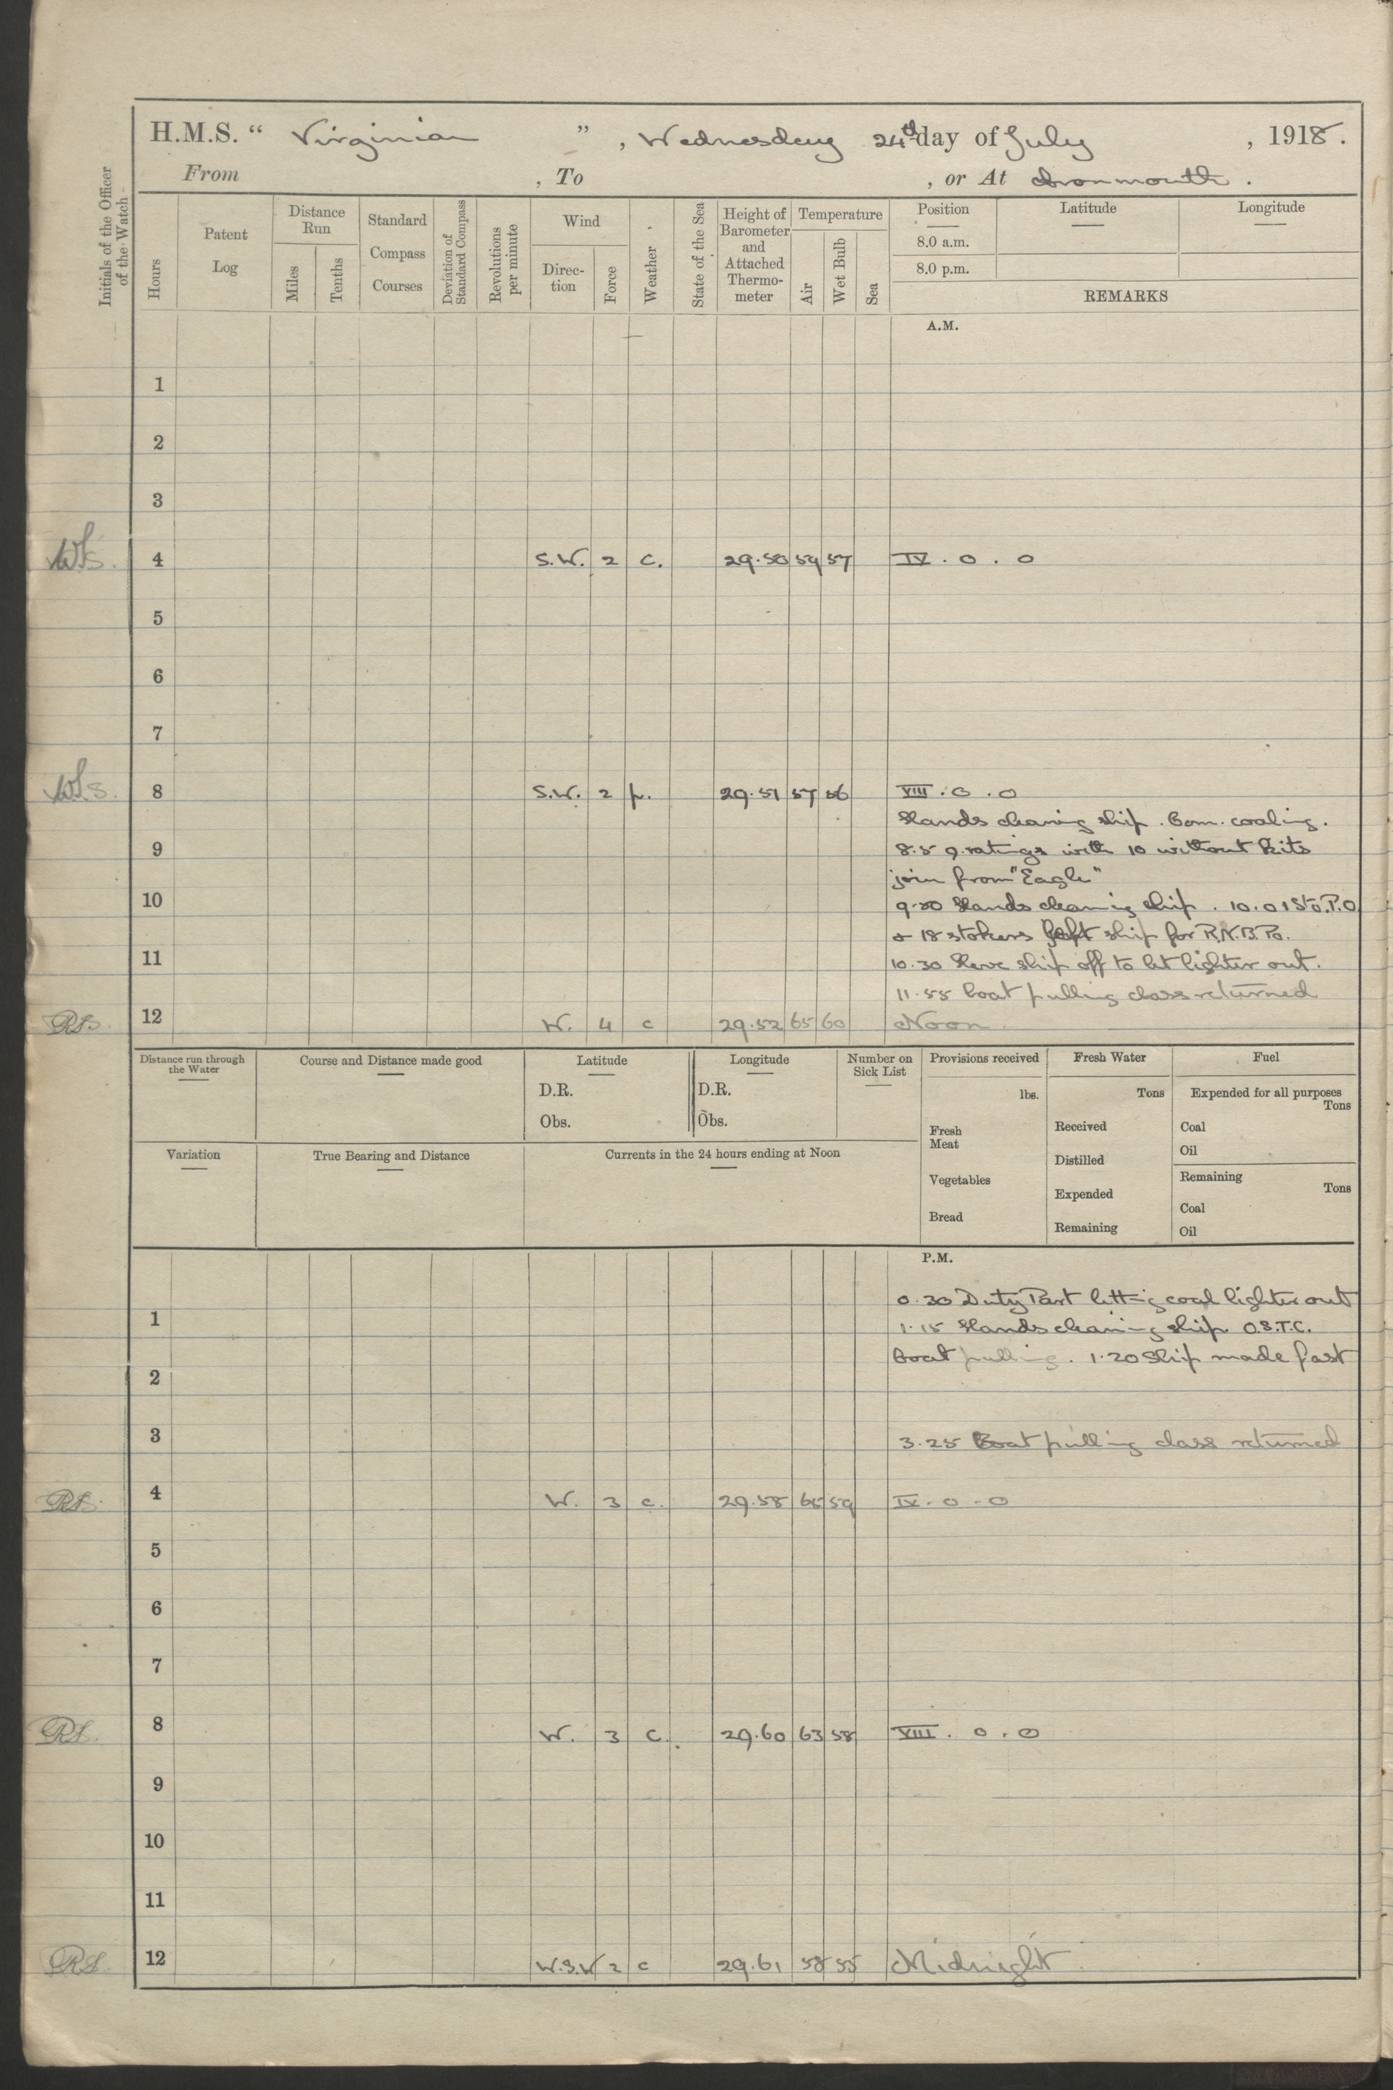 H.M.S. " Virginian ", Wednesday 24th day of July, 1918.
From , To , or At Avonmouth.
Initials of the Officer of the Watch
Hours
Patent Log
Distance Run
Miles
Tenths
Standard Compass Courses
Deviation of Standard Compass
Revolutions per minute
Wind
Direc-tion
Force
Weather
State of the Sea
Height of Barometer and Attached Thermo-meter
Temperature
Air
Wet Bulb
Sea
Position
Latitude
Longitude
8.0 a.m.
8.0 p.m.
REMARKS
A.M.
1
2
3
4 S.W. 2 c. 29.50 59 57 IV . 0 . 0
5
6
7
8 S.W. 2 p. 29.51 57 56 VIII . 0 . 0
Hands cleaning ship. Com. coaling.
9 8.5 9 ratings with 10 without kits
join from "Eagle"
10 9.20 Hands cleaning ship. 10.0 1 Sto. P.O
& 18 stokers left ship for R.N.B. Po.
11 10.30 Hove ship off to let lighter out.
11.55 boat pulling class returned
12 W. 4 c 29.52 65 60 Noon
Distance run through the Water
Course and Distance made good
Latitude
D.R.
Obs.
Longitude
D.R.
Obs.
Number on Sick List
Provisions received
lbs.
Fresh Meat
Vegetables
Bread
Fresh Water
Tons
Received
Distilled
Expended
Remaining
Fuel
Expended for all purposes
Tons
Coal
Oil
Remaining
Tons
Coal
Oil
Variation
True Bearing and Distance
Currents in the 24 hours ending at Noon
P.M.
0.30 Duty Part letting coal lighter out
1 1.15 Hands cleaning ship. O.S.T.C.
Boat pulling. 1.20 Ship made fast
2
3 3.25 Boat pulling class returned
4 W. 3 c. 29.58 65 59 IV . 0 . 0
5
6
7
8 W. 3 c. 29.60 63 58 VIII . 0 . 0
9
10
11
12 W.S.W 2 c 29.61 58 55 Midnight